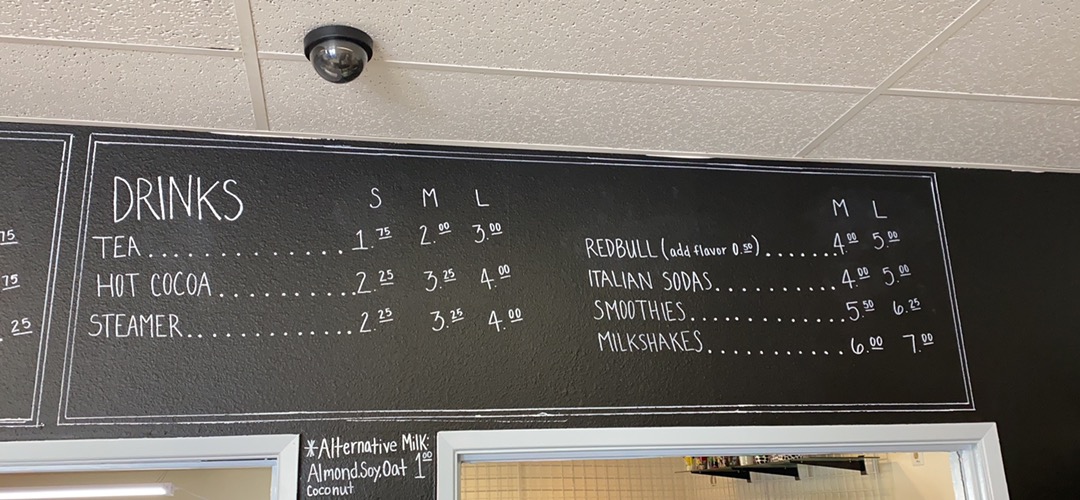 75
75
.25
DRINKS S M L
TEA..............1.75 2.00 3.00
HOT COCOA.............2.25 3.25 4.00
STEAMER...............2.25 3.25 4.00
M L
REDBULL (add flavor 0.50).......4.00 5.00
ITALIAN SODAS...........4.00 5.00
SMOOTHIES.............5.50 6.25
MILKSHAKES...........6.00 7.00
*Alternative Milk:
Almond,Soy,Oat 1.00
Coconut